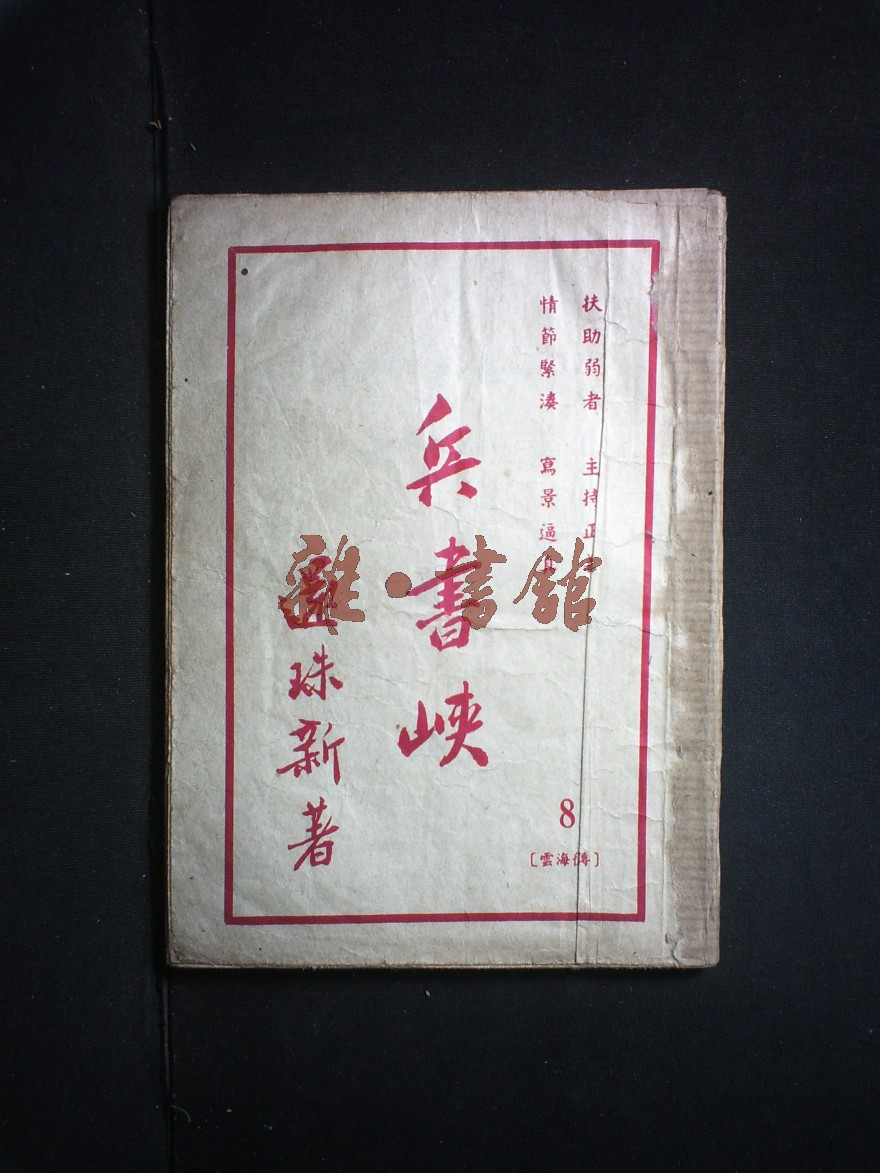 扶助弱者 主持正
情節緊湊 寫景逼
兵書峽
珠新著
8
〔雲海傳〕
雜·書館